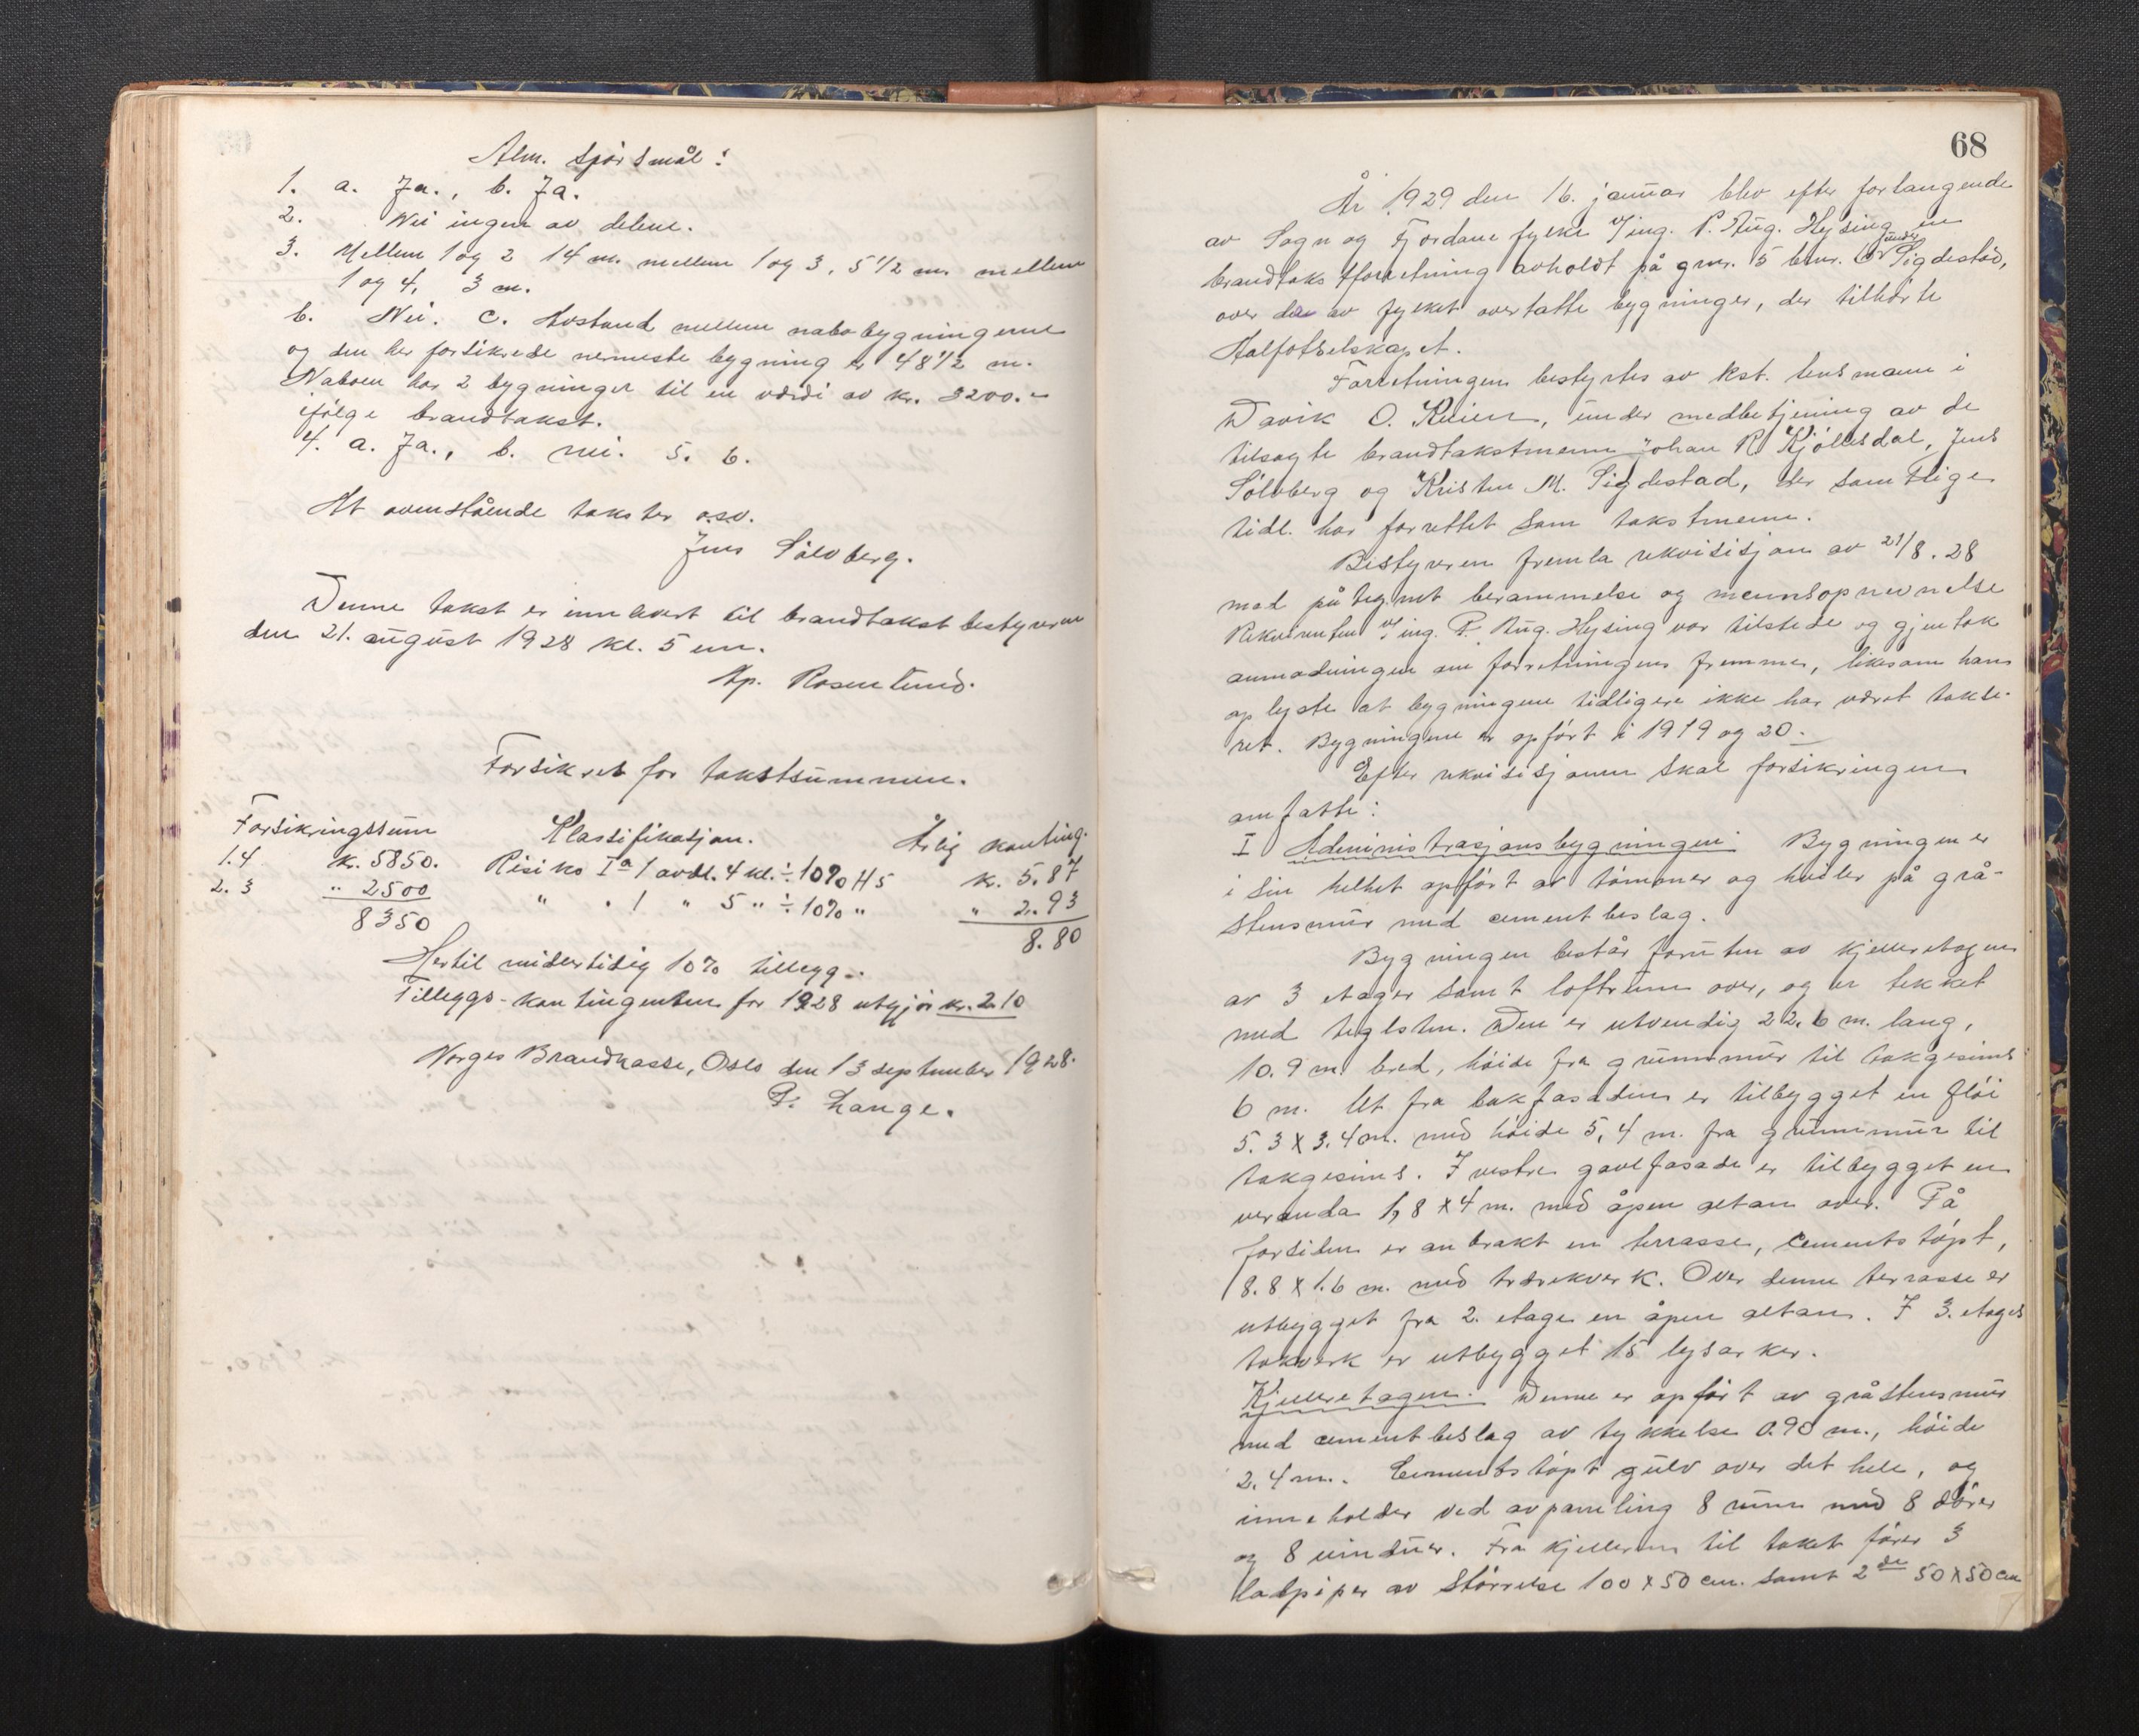 Alm. spörsmål:
1. a. Ja., b. Ja.
2. Nei ingen av delene.
3. Mellem 1 og 2 14 m. mellem 1 og 3, 5 1/2 m. mellem
1 og 4, 3 m.
b. Nei. C. Avstand mellem nabobygningerne
og den her forsikrede nermeste bygning er 48 1/2 m.
Naboen har 2 bygninger til en værdi av kr. 3200.-
ifölge brandtakst.
4. a. Ja., b. nei. 5. 6.
At ovenstående takster o.s.v.
Jens Sölvberg.
Denne takst er innlevert til brandtakstbestyreren
den 21. august 1928 kl. 5 em.
Ap. Rosenlund.
Forsikret for takstsummen.
Forsikringssum Klassifikasjon. Årlig konting.
1.4 kr. 5850. Risiko Ia 1 avdl. 4 kl. ÷ 10% H5 kr. 5.87
2. 3 " 2500 " " 1 " 5 " ÷ 10% " " 2.93
8350 8.80
Hertil midlertidig 10% tillegg.
Tilleggs-kontingenten for 1928 utgjör kr. 2.10
Norges Brandkasse, Oslo den 13 september 1928.
P. Lange.
68
År 1929 den 16. januar blev efter forlangende
av Sogn og Fjordane fylke v/ing. P. Aug. Hysing en
brandtakstforretning avholdt på gnr. 5 bnr. 6 under Sigdestad,
over de av fylket overtatte bygninger, der tilhörte
Aalfotselskapet.
Forretningen bestyrtes av kst. lensmann i
Davik O. , under medbetjening av de
tilsagte brandtakstmenn Johan R. Kjölesdal, Jens
Sölvberg og Kristen M. Sigdestad, der samtlige
tidl. har forrettet som takstmenn.
Bestyreren fremla rekvisisjon av 21/8. 28
med påtegnet berammelse og mennsopnevnelse
Rekvirenten v/ing. P. Aug. Hysing var tilstede og gjentok
anmodningen om forretningens fremme, liksom han
oplyste at bygningene tidligere ikke har været takse-
ret. Bygningene er opfört i 1919 og 20.
Efter rekvisisjonen skal forsikringen
omfatte:
I Administrasjonsbygningen. Bygningen er
i sin helhet opfört av tömmer og hviler på grå-
stensmur med cementbeslag.
Bygningen består foruten av kjelleretagen
av 3 etager samt loftrum over, og er tekket
med teglsten. Den er utvendig 22.6 m. lang,
10.9 m. bred, höide fra grunnmur til takgesims
6 m. Ut fra bakfasaden er tilbygget en flöi
5.3 x 3.4 m. med höide 5,4 m. fra grunnmur til
takgesims. I vestre gavlfasade er tilbygget en
veranda 1,8 x 4 m. med åpen altan over. På
forsiden er anbrakt en terrasse, cementstöpt,
8.8 x 1.6 m. med trærekverk. Over denne terrasse er
utbygget fra 2. etage en åpen altan. I 3. etages
takverk er utbygget 15 lysarker.
Kjelleretagen. Denne er opfört av gråstensmur
med cementbeslag av tykkelse 0.90 m., höide
2.4 m. Cementstöpt gulv over det hele, og
inneholder ved avpaneling 8 rum med 8 dörer
og 8 vinduer. Fra kjelleren til taket förer 3
 av störrelse 100 x 50 cm. samt 2 de 50 x 50 cm